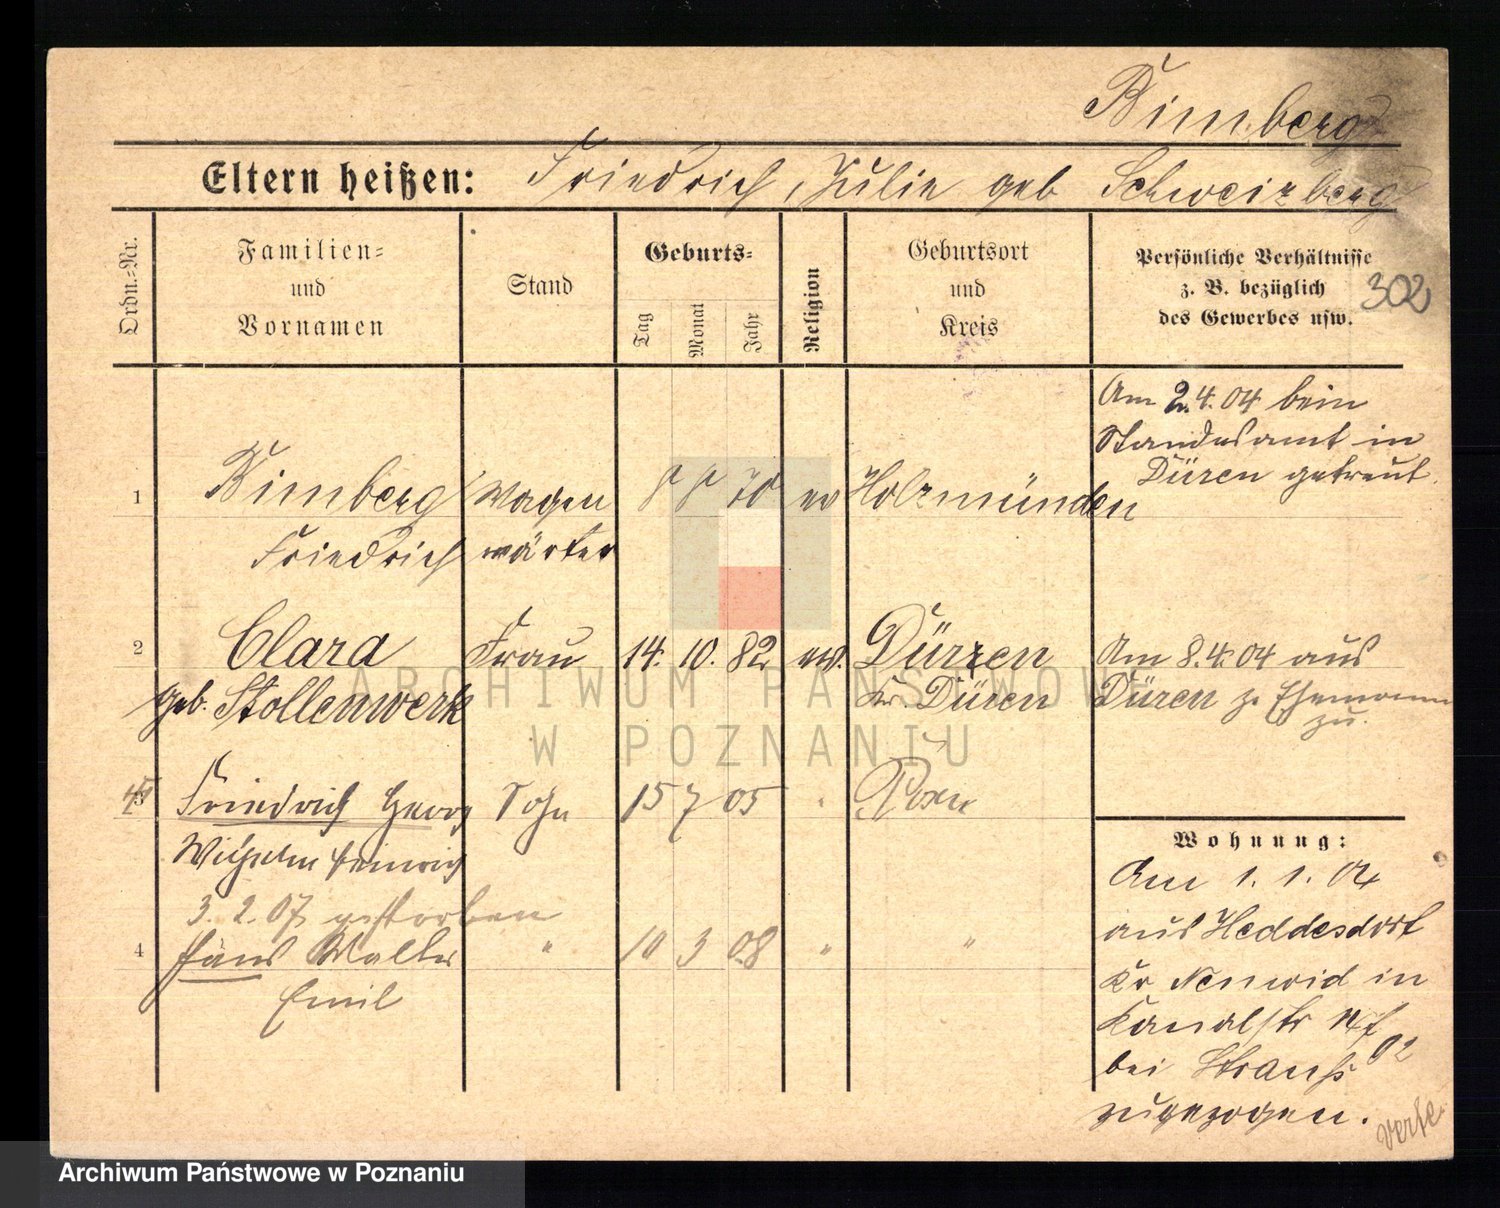 Bimberg
Eltern heißen: Friedrich, Julie geb Schweinberg
Ordn.=Nr.
Familien= und Vornamen
Stand
Geburts=
Tag
Monat
Jahr
Religion
Geburtsort und Kreis
Persönliche Verhältnisse z. B. bezüglich des Gewerbes usw.
302
1
Bimberg Friedrich
Wagen wärter
8 8 78
ev
Holzmünden
Am 2.4.04 beim
Standesamt in
Düren getraut.
2
Clara
geb. Stollenwerk
Frau
14. 10. 82
ev.
Düren
Kr. Düren
Am 8.4.04 aus
Düren z. Ehemann
zu.
3
Friedrich Georg
Wilhelm Heinrich
Sohn
15 7 05
"
Posen
3. 2. 07 gestorben
4
Hans Walter
Emil
"
10 3 08
"
"
Wohnung:
Am 1. 1. 04
aus Heddesdorf
Kr Neuwid in
Kanalstr
bei Strauß
zugezogen.
ARCHIWUM PAŃSTWOWE
W POZNANIU
Archiwum Państwowe w Poznaniu